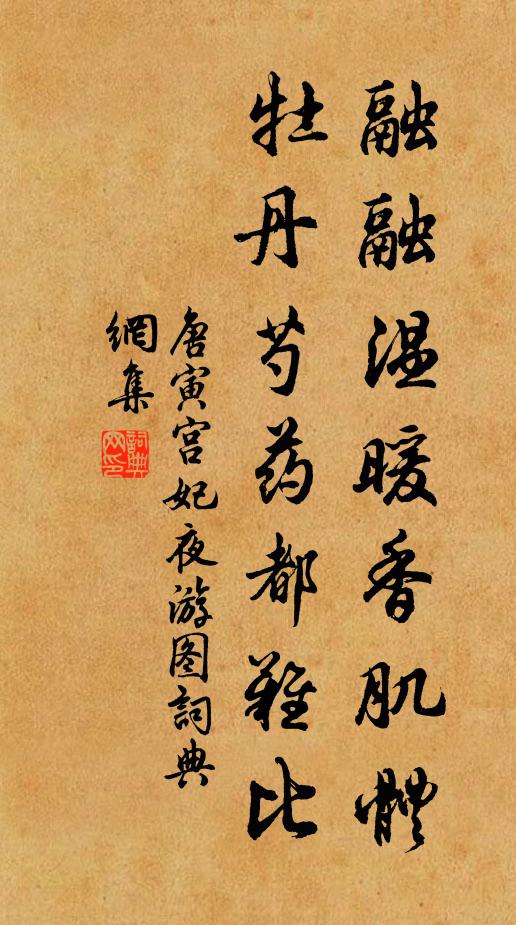 融融温暖香肌體
牡丹芍药都難比
唐寅宫妃夜游图詞典
網集
詞典
网印